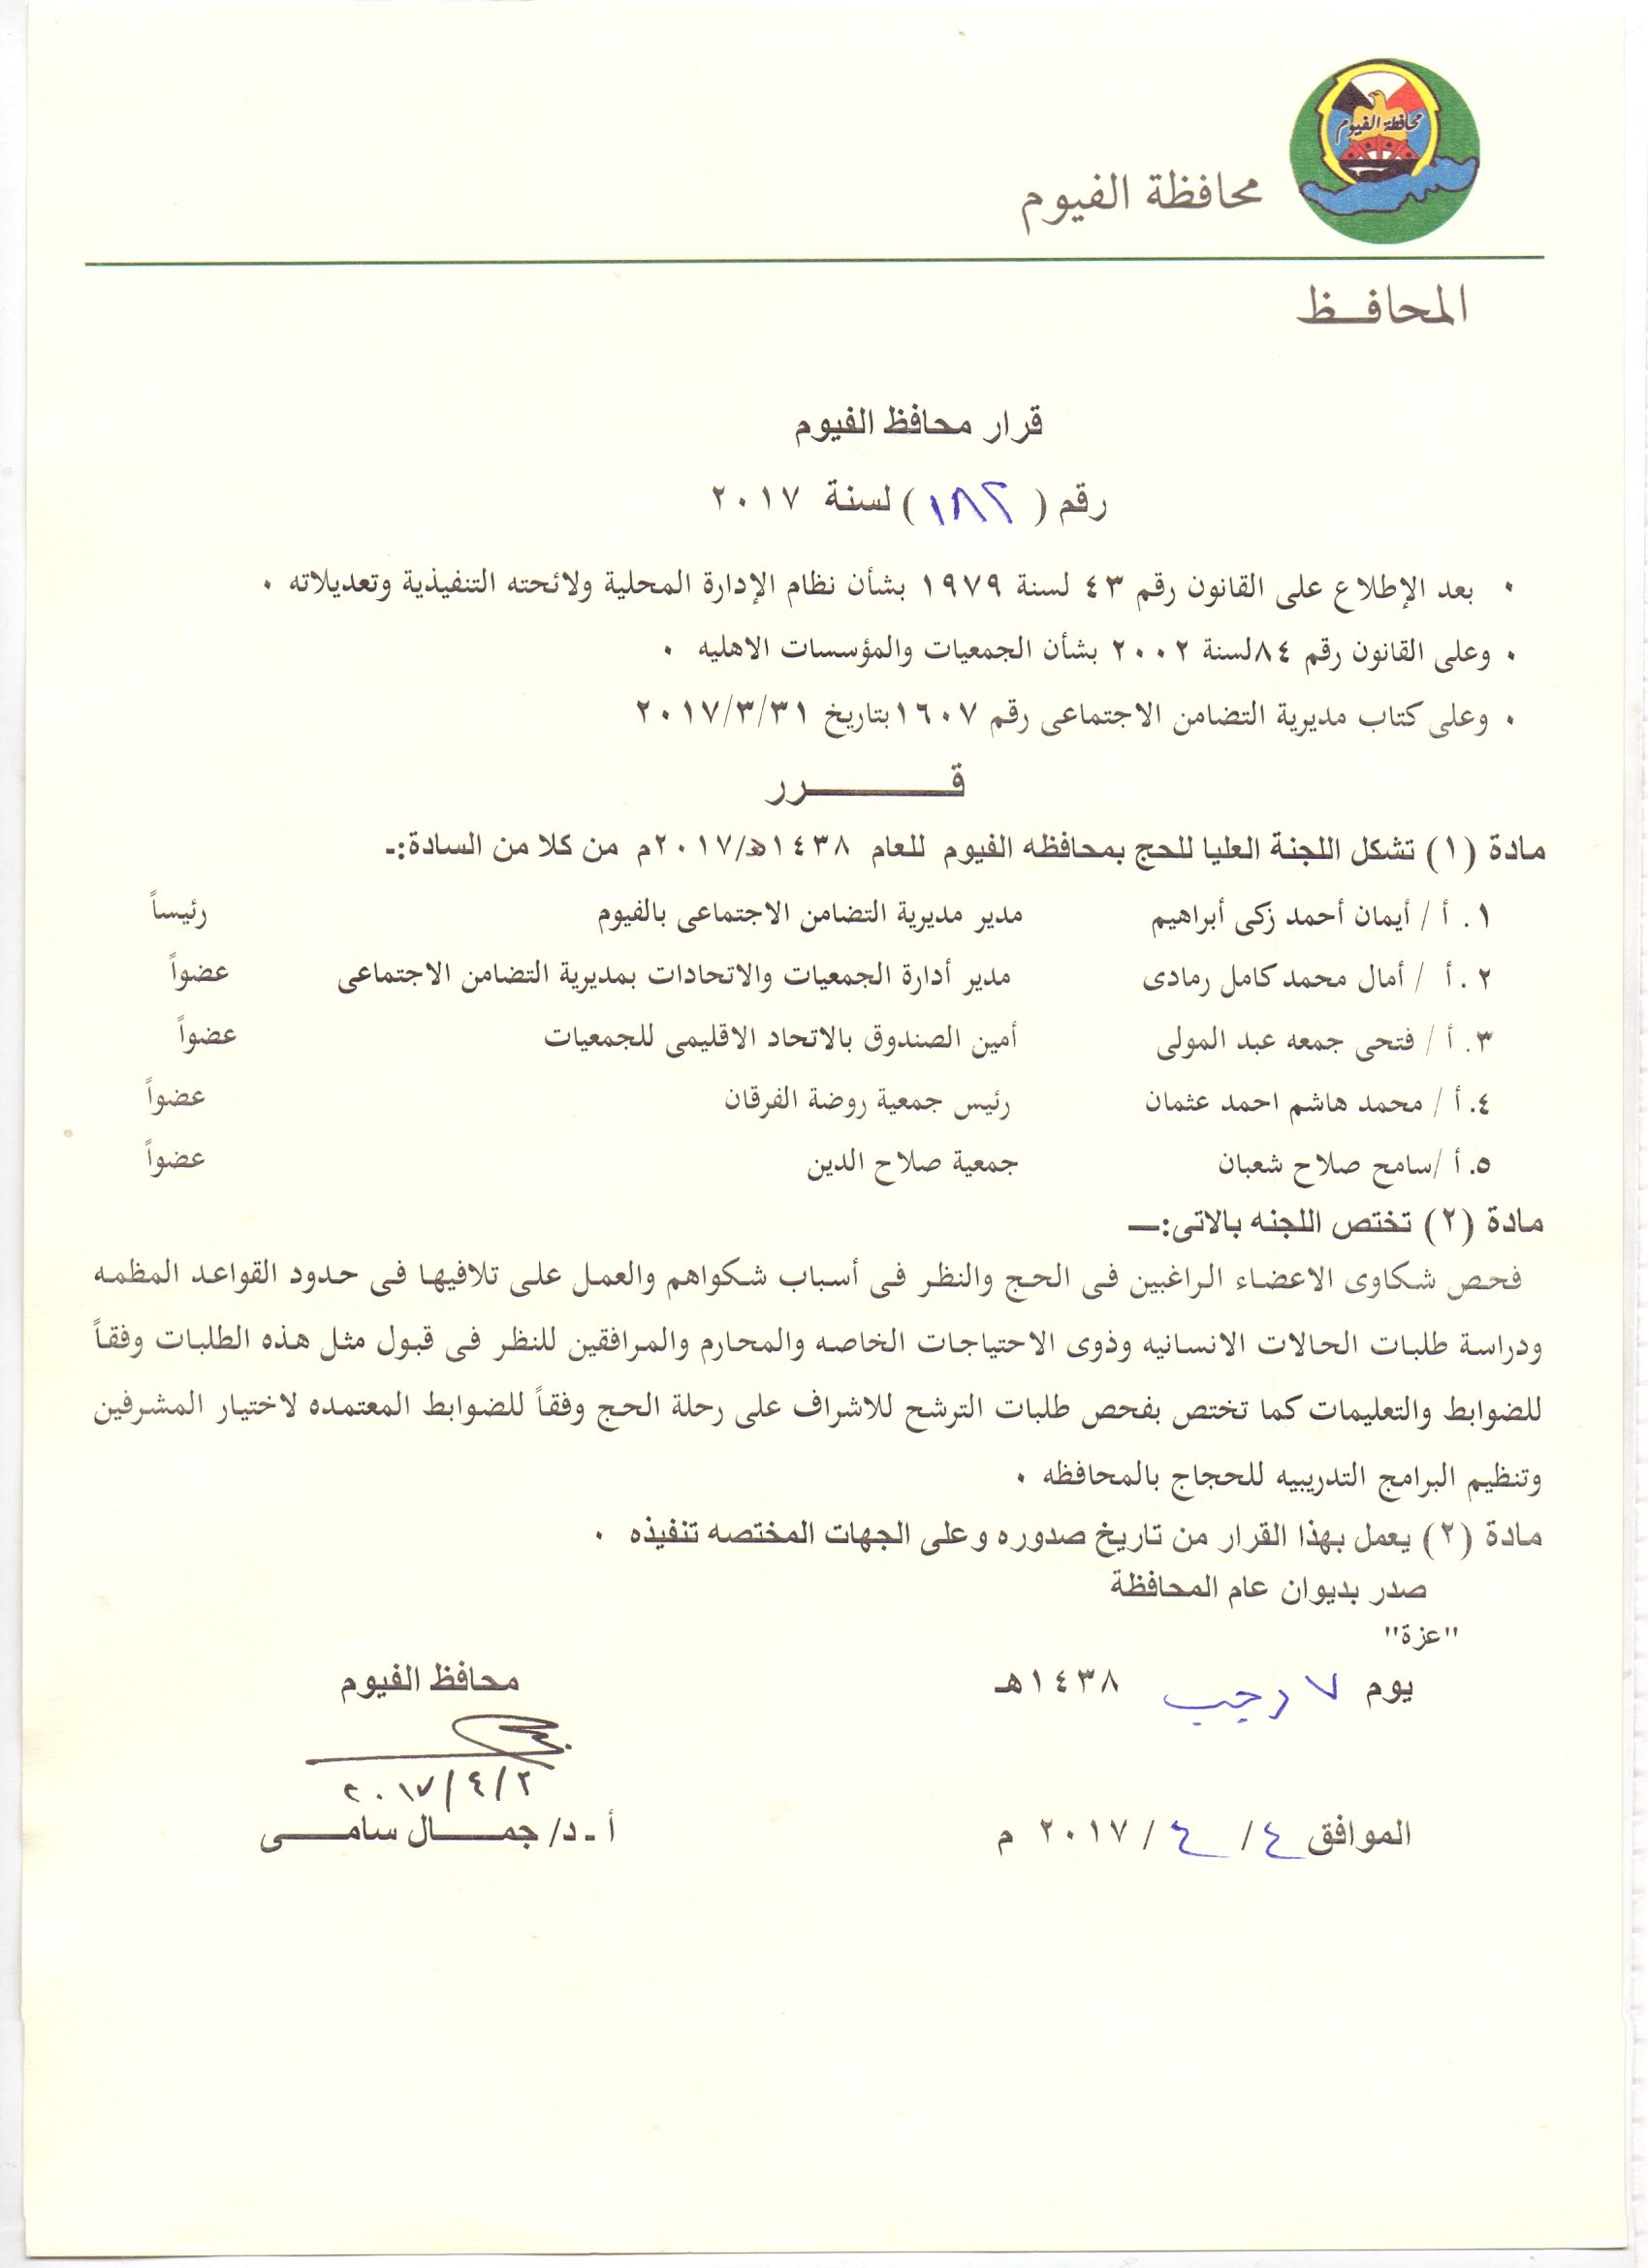 محافظة الفيوم
محافظة الفيوم
المحافـــظ
قرار محافظ الفيوم
رقم ( ١٨٢ ) لسنة ٢٠١٧
٠ بعد الإطلاع على القانون رقم ٤٣ لسنة ١٩٧٩ بشأن نظام الإدارة المحلية ولائحته التنفيذية وتعديلاته ٠
٠ وعلى القانون رقم ٨٤لسنة ٢٠٠٢ بشأن الجمعيات والمؤسسات الاهليه ٠
٠ وعلى كتاب مديرية التضامن الاجتماعى رقم ١٦٠٧بتاريخ ٢٠١٧/٣/٣١
قـــــــرر
مادة (١) تشكل اللجنة العليا للحج بمحافظه الفيوم للعام ١٤٣٨هـ/٢٠١٧م من كلا من السادة:ـ
١. أ / أيمان أحمد زكى أبراهيم مدير مديرية التضامن الاجتماعى بالفيوم رئيساً
٢. أ / أمال محمد كامل رمادى مدير أدارة الجمعيات والاتحادات بمديرية التضامن الاجتماعى عضواً
٣. أ / فتحى جمعه عبد المولى أمين الصندوق بالاتحاد الاقليمى للجمعيات عضواً
٤. أ / محمد هاشم احمد عثمان رئيس جمعية روضة الفرقان عضواً
٥. أ /سامح صلاح شعبان جمعية صلاح الدين عضواً
مادة (٢) تختص اللجنه بالاتى:ــ
فحص شكاوى الاعضاء الراغبين فى الحج والنظر فى أسباب شكواهم والعمل على تلافيها فى حدود القواعد المظمه
ودراسة طلبات الحالات الانسانيه وذوى الاحتياجات الخاصه والمحارم والمرافقين للنظر فى قبول مثل هذه الطلبات وفقاً
للضوابط والتعليمات كما تختص بفحص طلبات الترشح للاشراف على رحلة الحج وفقاً للضوابط المعتمده لاختيار المشرفين
وتنظيم البرامج التدريبيه للحجاج بالمحافظه ٠
مادة (٢) يعمل بهذا القرار من تاريخ صدوره وعلى الجهات المختصه تنفيذه ٠
صدر بديوان عام المحافظة
"عزة"
يوم ٧ رجب ١٤٣٨هـ
محافظ الفيوم
٢٠١٧/٤/٢
الموافق ٤ / ٤ / ٢٠١٧ م
أ ـ د/ جمـــال سامـــى